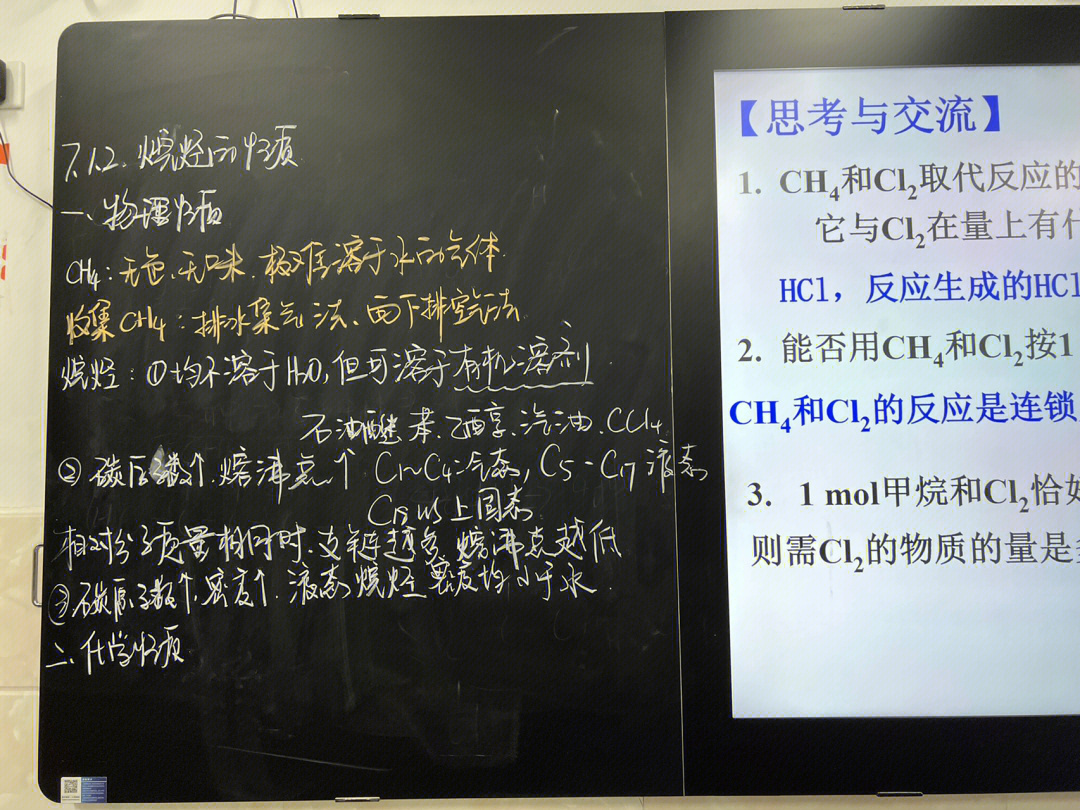 7.1.2. 烷烃的性质
一、物理性质
CH4: 无色、无味、极难溶于水的气体
收集CH4: 排水集气法、向下排空气法
烷烃: ①均不溶于H2O, 但可溶于有机溶剂
石油醚、苯、乙醇、汽油、CCl4
②碳原子数↑, 熔沸点↑ C1~C4:气态, C5-C17 液态
C18以上固态
相对分子质量相同时、支链越多, 熔沸点越低
③碳原子数↑, 密度↑, 液态烷烃密度均小于水.
二、化学性质
【思考与交流】
1. CH4和Cl2取代反应的
它与Cl2在量上有什
HCl，反应生成的HCl
2. 能否用CH4和Cl2按1
CH4和Cl2的反应是连锁
3. 1 mol甲烷和Cl2恰好
则需Cl2的物质的量是多